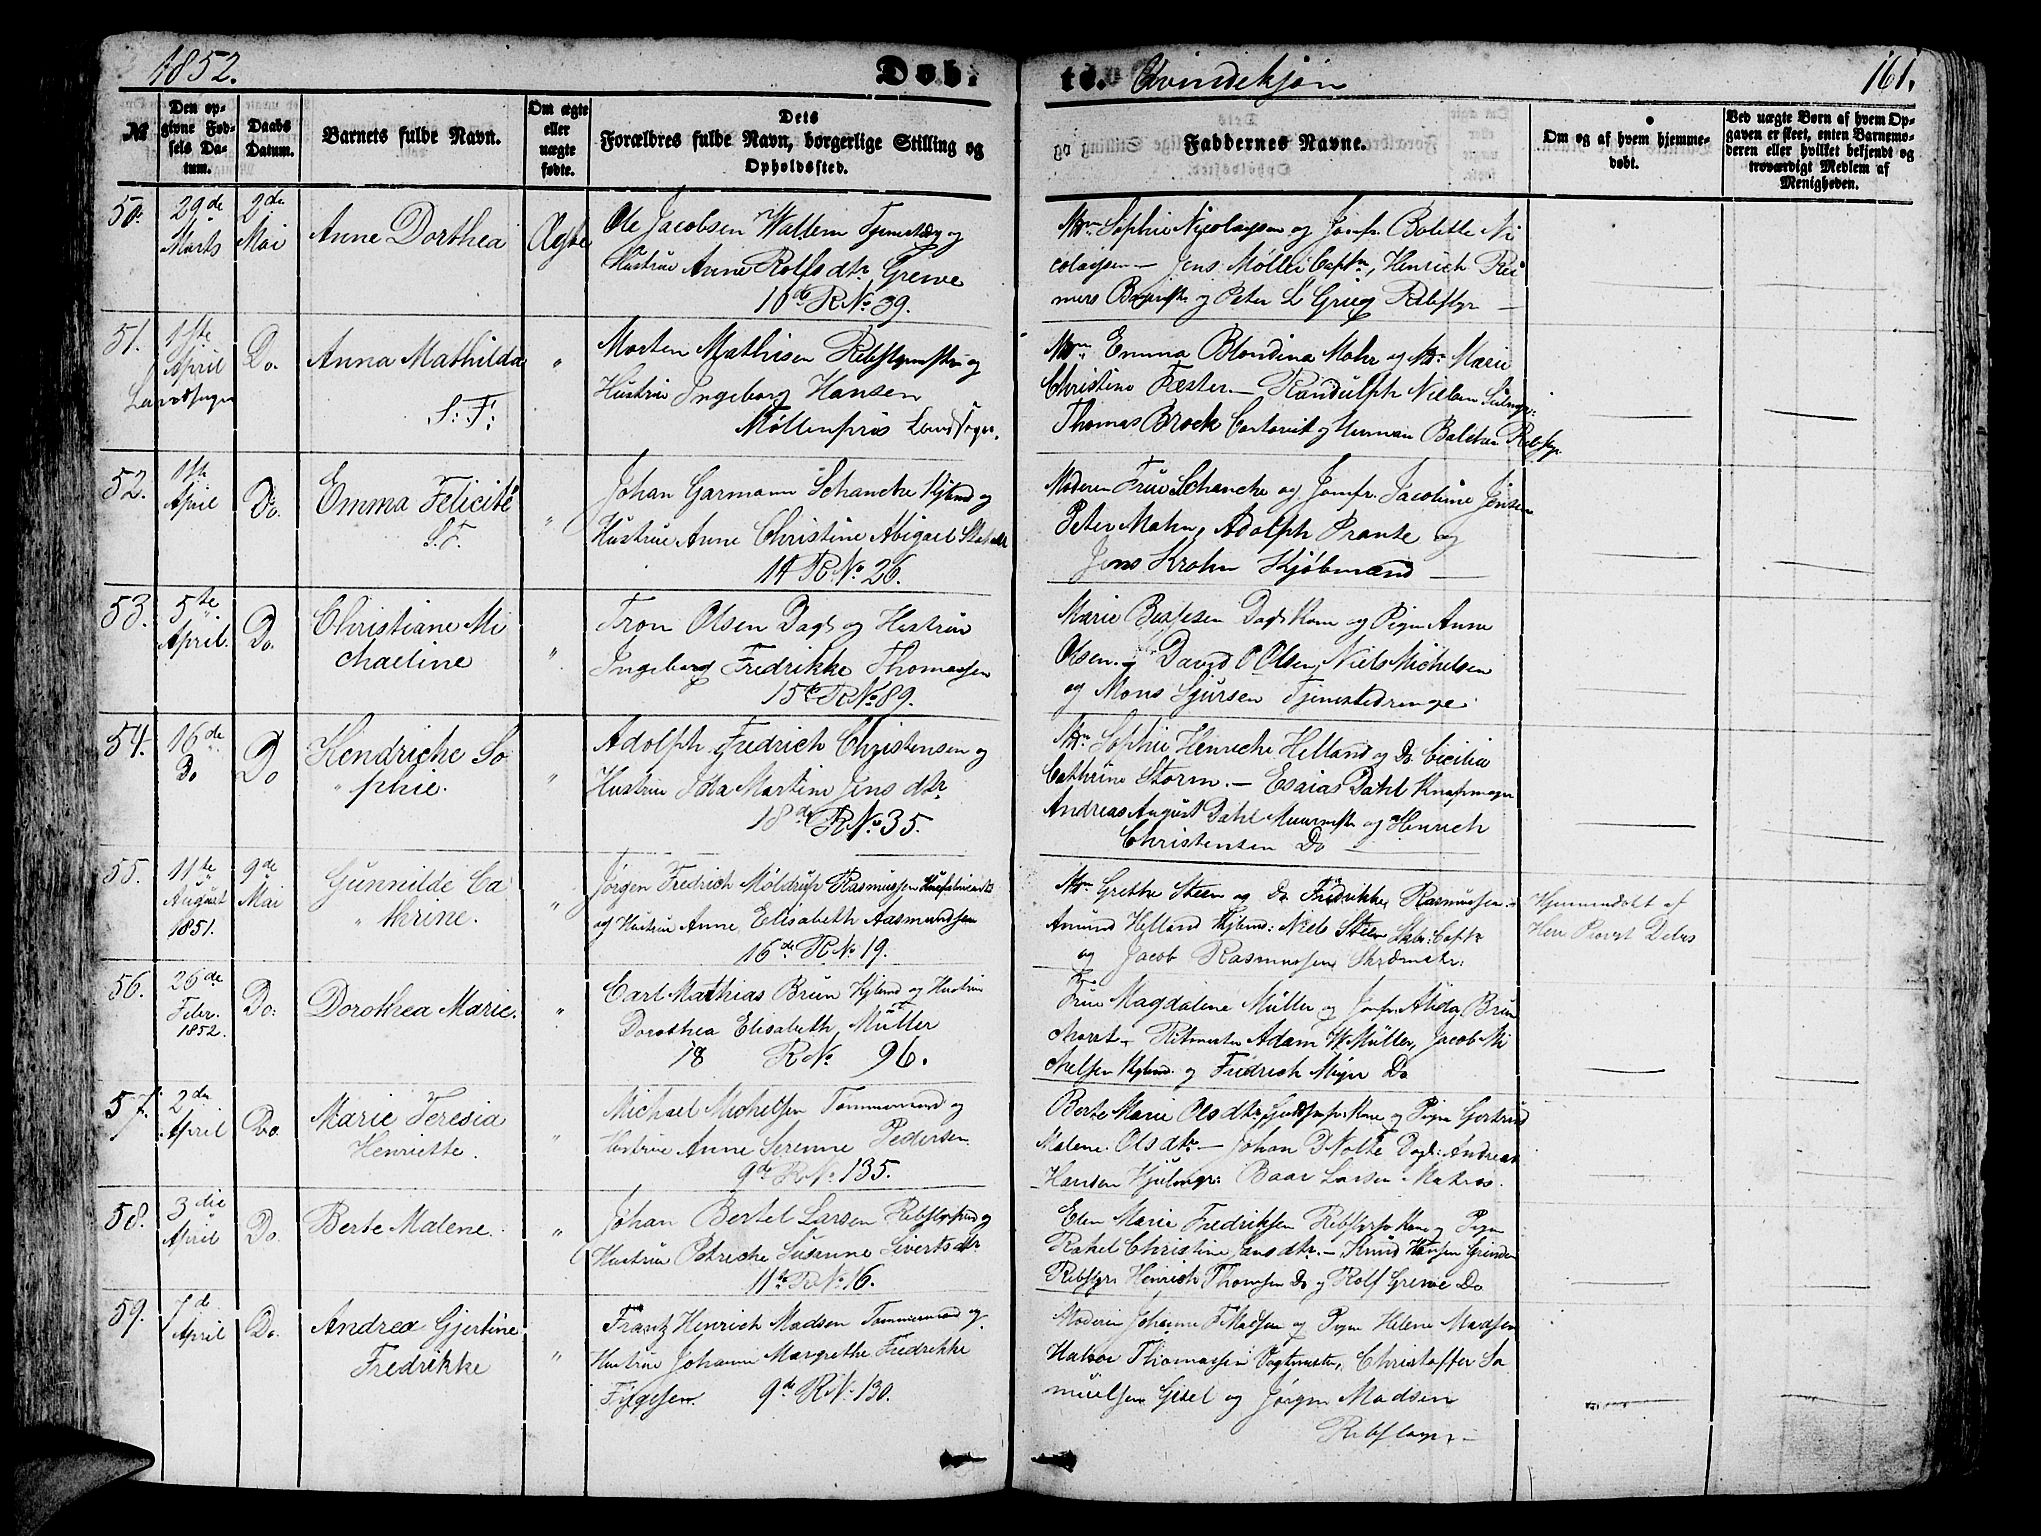 1852.
Døb-
te. Qvindekjøn
161.
№
Den op-
givne Fød-
sels Da-
tum.
Daabs
Datum.
Barnets fulde Navn.
Om ægte
eller
uægte
fødte.
Dets
Forældres fulde Navn, borgerlige Stilling og
Opholdssted.
Faddernes Navne.
Om og af hvem hjemme-
døbt.
Ved uægte Børn af hvem Op-
gaven er skeet, enten Barnemo-
deren eller hvilket bekjendt og
troværdigt Medlem af
Menigheden.
50.
29de
Marts
2den
Mai
Anne Dorthea
Ægte
Ole Jacobsen Wallem og
Hustrue Anne Rolfsdtr. Greve
10de R No. 39.
Sophie Nicolaysen og Jomfr. Bolette Ni
colaysen - Jens Møller Captn, Henrich Rei
mers og Peter L Grieg Rebslgr
51.
1ste
April
Landsogn
Do.
Anna Mathilda
S: F:
"
Morten Mathisen og
Hustrue Ingeborg Hansen
Møllenpris Landsogn.
Emma Blondina Mohr og Marie
Christine Fester - Randulph Nielsen
Thomas Brock og Herman Rebslgr
52.
1ste
April
Do.
Emma Felicité
S.F.
"
Johan Garmann Schancke Kjbmd og
Hustrue Anne Christine Abigael
14 R No. 26.
Moderen Frue Schancke og Jomfr. Jacobine Jensen
Peter Mohn, Adolph Prante og
Jens Krohn Kjøbmænd
53.
5te
April.
Do.
Christiane Mi
chaeline
"
Tron Olsen Dagl og Hustrue
Ingeborg Fredrikke Thomassen
15de R No. 89.
Marie Dagl Kone og Pigen Anne
Olsen. David O Olsen, Niels Michelsen
og Mons Sjursen Tjenestedrenge
54.
16de
Do
Do
Hendriche So
phie.
"
Adolph Fredrich Christensen og
Hustrue Ida Martine Jensdtr.
18de R No. 35.
Sophie Henriche Helland og Do Cicilia
Cathrine Storm. - Esaias Dahl Knapmager
Andreas August Dahl Muurmstr og Henrich
Christensen Do
55.
11te
August
1851.
9de
Mai
Gunnilde Ca
thrine.
"
Jørgen Fredrich Møldrup Rasmussen
og Hustrue Anne Elisabeth Aasmundsen
16de R No. 19.
Grethe Steen og Do Fredrikke Rasmussen
Amund Helland Kjbmd: Niels Steen
og Jacob Rasmussen
Hjemmedøbt af
Herr Provst Debes
56.
26de
Febr.
1852.
Do:
Dorothea Marie.
"
Carl Mathias Brun Kjbmd og Hustrue
Dorothea Elisabeth Müller
18 R No 96.
Frue Magdalene Müller og Jomfr. Alida Brun
Ritmester Adam W Müller, Jacob Mi
chelsen Kjbmd. og Fredrich Meyer Do
57.
2den
April
Do.
Marie Teresia
Henriette.
"
Michael Michelsen Tømmermand og
Hustrue Anne Serenne Pedersen
9de R No. 135.
Berte Marie Olsdtr. Kone og Pigen Gertrud
Malene Olsdtr - Johan D Nolte Dagl: Andreas
Hansen Hjulmgr: Baar Larsen Matros.
58.
3die
April
Do.
Berte Malene.
"
Johan Bertel Larsen og
Hustrue Petriche Susanne Sivertsdtr
11te R No. 16.
Elen Marie Fredriksen Kone og Pigen
Rakel Christine Jansdtr. - Knud Hansen
Rebslgr. Henrich Thomsen Do og Rolf Greve Do
59.
7de
April
Do.
Andrea Gjertine
Fredrikke
"
Frantz Henrich Madsen Tømmermand og
Hustrue Johanne Margrethe Fredrikke
9de R No. 130.
Moderen Johanne F Madsen og Pigen Helene Madsen
Halvor Thomassen Vagtmester, Christoffer Sa
muelsen Gisel og Jørgen Madsen